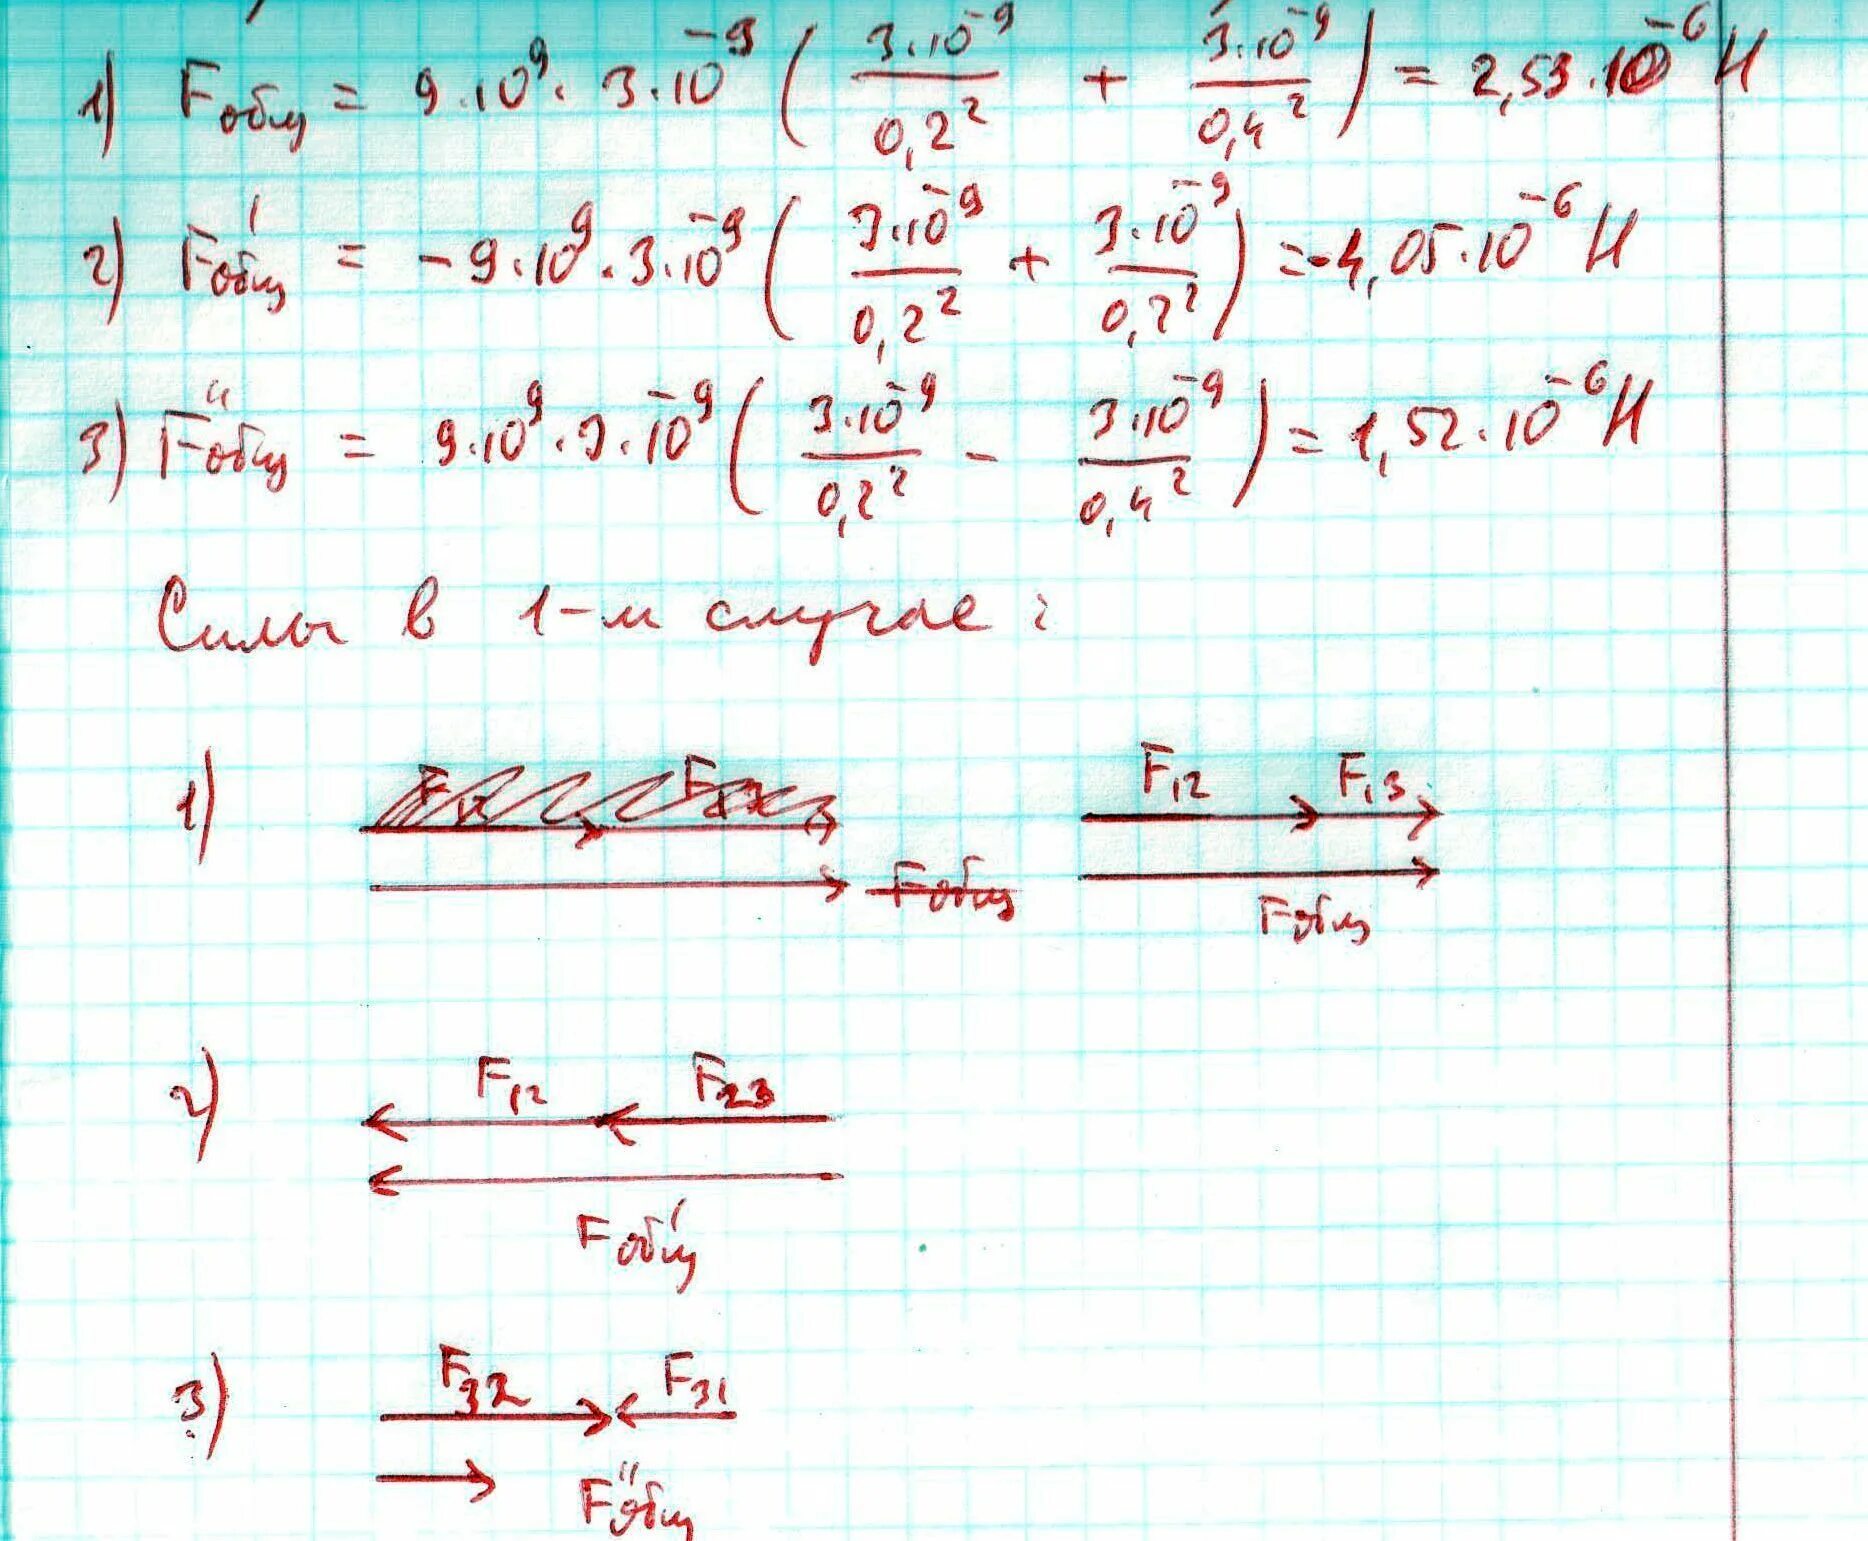 1) Fобщ = 9·10⁹·3·10⁻⁹ (3·10⁻⁹/0,2² + 3·10⁻⁹/0,4²) = 2,53·10⁻⁶ Н
2) F'общ = -9·10⁹·3·10⁻⁹ (3·10⁻⁹/0,2² + 3·10⁻⁹/0,2²) = -4,05·10⁻⁶ Н
3) F''общ = 9·10⁹·3·10⁻⁹ (3·10⁻⁹/0,2² - 3·10⁻⁹/0,4²) = 1,52·10⁻⁶ Н
Силы в 1-м случае:
1) F₁₂ F₁₃
Fобщ Fобщ
2) F₁₂ F₂₃
F'общ
3) F₃₂ F₃₁
F''общ